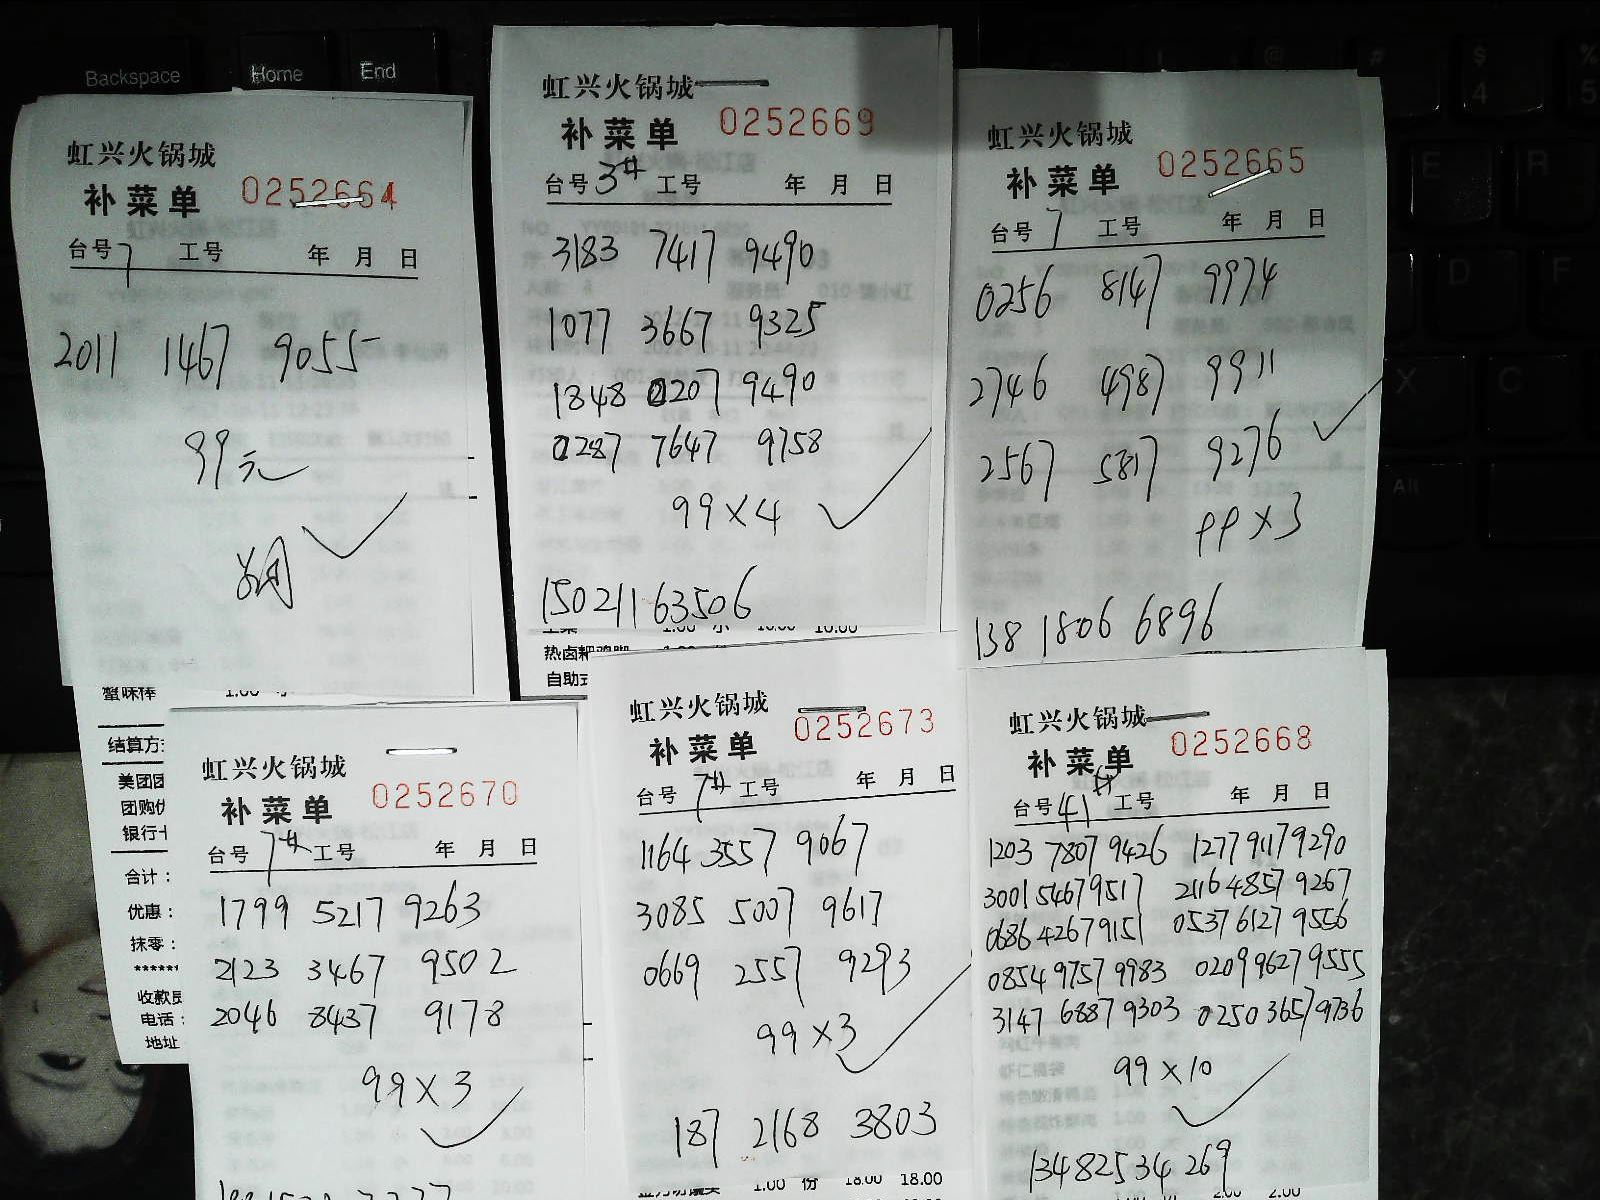 Backspace
Home
End
虹兴火锅城
补菜单 0252664
台号 7 工号 年 月 日
2011 1467 9055
99元
虹兴火锅城
补菜单 0252669
台号 3# 工号 年 月 日
3183 7417 9490
1077 3667 9325
1848 0207 9490
0287 7647 9758
99×4
15021163506
虹兴火锅城
补菜单 0252665
台号 7 工号 年 月 日
0256 8147 9974
2746 4987 9911
2567 5817 9276
99×3
138 1806 6896
热卤耙鸡脚
自助式
蟹味棒 1.00
结算方
美团团
团购优
银行卡
合计：
优惠：
抹零：
******
收款员
电话：
地址
虹兴火锅城
补菜单 0252670
台号 7# 工号 年 月 日
1799 5217 9263
2123 3467 9502
2046 8437 9178
99×3
虹兴火锅城
补菜单 0252673
台号 7# 工号 年 月 日
1164 3557 9067
3085 5007 9617
0669 2557 9293
99×3
187 2168 3803
1.00 份 18.00 18.00
虹兴火锅城
补菜单 0252668
台号 41# 工号 年 月 日
1203 7807 9426 1277 9117 9290
3001 5467 9517 2116 4857 9267
0686 4267 9151 0537 6127 9556
0854 9757 9983 0209 9627 9555
3147 6887 9303 0250 3657 9736
99×10
13482534269